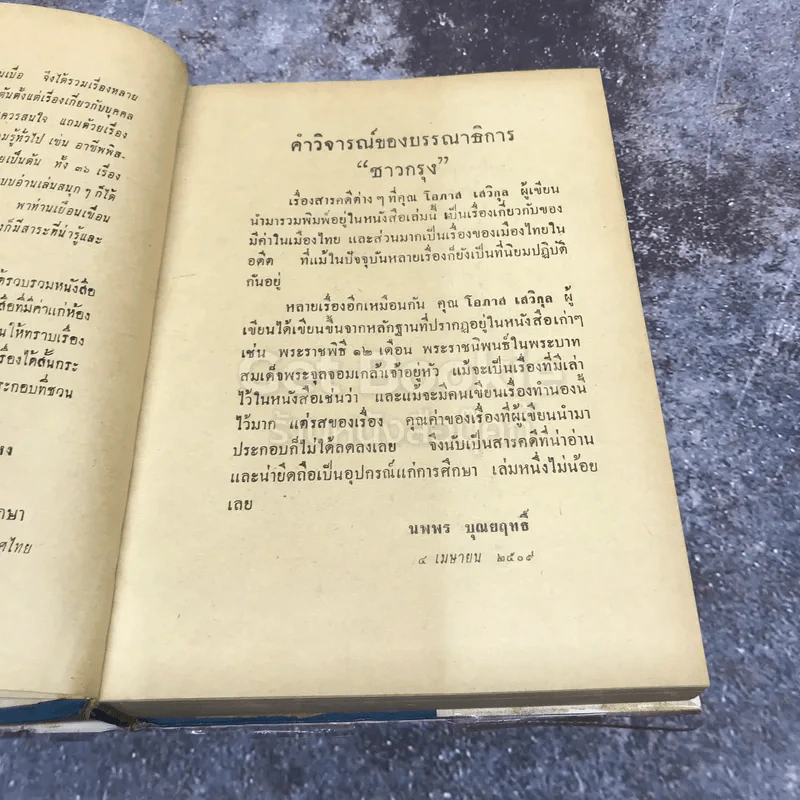 นเบื่อ จึงได้รวมเรื่องหลาย
ต้นตั้งแต่เรื่องเกี่ยวกับบุคคล
ควรสนใจ แถมด้วยเรื่อง
มรู้ทั่วไป เช่น อาชีพพิส-
ยเป็นต้น ทั้ง ๓๖ เรื่อง
บบอ่านเล่นสนุก ๆ ก็ได้
พาท่านเยือนเขื่อน
งก็มีสาระที่น่ารู้และ
ด้รวบรวมหนังสือ
สือที่มีค่าแก่ห้อง
นให้ทราบเรื่อง
รื่องได้สั้นกระ
ระกอบที่ชวน
กษา
ศไทย
คำวิจารณ์ของบรรณาธิการ
“ชาวกรุง”
เรื่องสารคดีต่าง ๆ ที่คุณ โอภาส เสวิกุล ผู้เขียน
นำมารวมพิมพ์อยู่ในหนังสือเล่มนี้ เป็นเรื่องเกี่ยวกับของ
มีค่าในเมืองไทย และส่วนมากเป็นเรื่องของเมืองไทยใน
อดีต ที่แม้ในปัจจุบันหลายเรื่องก็ยังเป็นที่นิยมปฏิบัติ
กันอยู่
หลายเรื่องอีกเหมือนกัน คุณ โอภาส เสวิกุล ผู้
เขียนได้เขียนขึ้นจากหลักฐานที่ปรากฏอยู่ในหนังสือเก่าๆ
เช่น พระราชพิธี ๑๒ เดือน พระราชนิพนธ์ในพระบาท
สมเด็จพระจุลจอมเกล้าเจ้าอยู่หัว แม้จะเป็นเรื่องที่มีเล่า
ไว้ในหนังสือเช่นว่า และแม้จะมีคนเขียนเรื่องทำนองนี้
ไว้มาก แต่รสของเรื่อง คุณค่าของเรื่องที่ผู้เขียนนำมา
ประกอบก็ไม่ได้ลดลงเลย จึงนับเป็นสารคดีที่น่าอ่าน
และน่ายึดถือเป็นอุปกรณ์แก่การศึกษา เล่มหนึ่งไม่น้อย
เลย
นพพร บุณยฤทธิ์
๔ เมษายน ๒๕๐๙